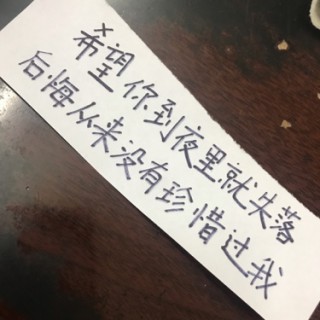 希望你到夜里就失落
后悔从来没有珍惜过我